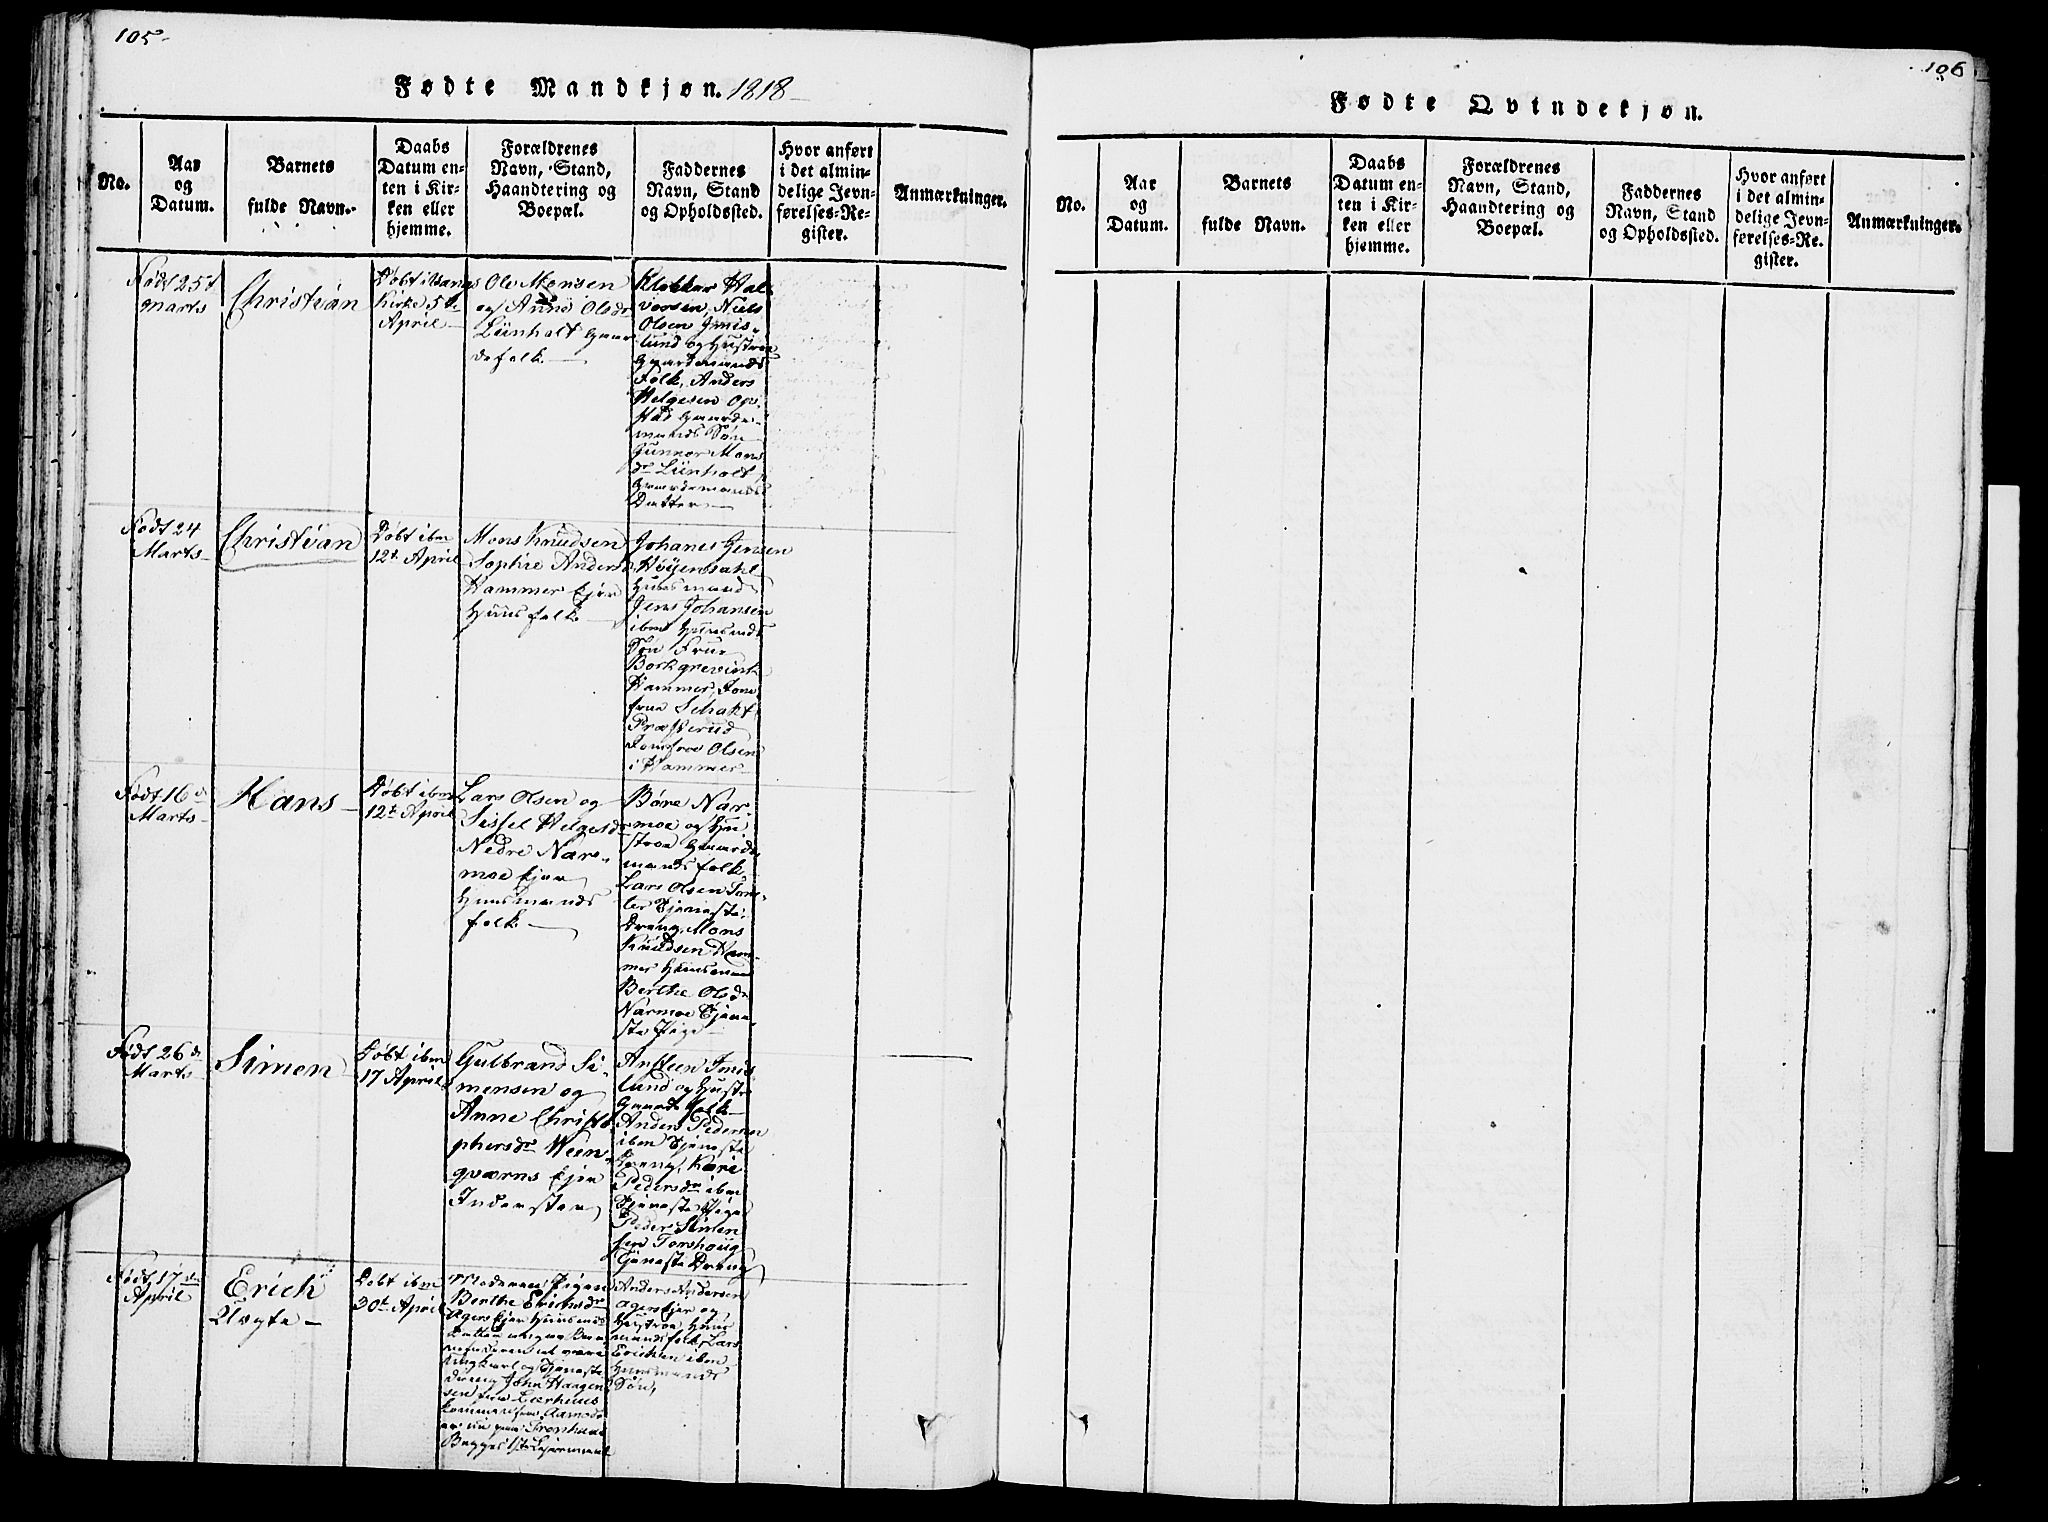 105
Fødte Mandkjøn. 1818
No.
Aar
og
Datum.
Barnets
fulde Navn.
Daabs
Datum en-
ten i Kir-
ken eller
hjemme.
Forældrenes
Navn, Stand,
Haandtering og
Boepæl.
Faddernes
Navn, Stand
og Opholdssted.
Hvor anført
i det almin-
delige Jevn-
førelses-Re-
gister.
Anmærkninger.
Født 25
Marts
Christian
Døbt i Vangs
Kirke 5te
April
Ole Monsen
og Anne Olsdr
Lünholt Gaar
defolk
Klokker Hal
vorsen, Niels
Olsen Imis-
lund og Hustroe
Gaardmands
Folk, Anders
Helgesen Op-
stad Gaard-
mands Søn
Gunnor Mons
dr Lünholt
Gaardemands
Datter
Født 24
Marts
Christian
Døbt ibm
12t April
Mons Knudsen
Sophie Andersd
Hammer Ejer
Huusfolk
Johanes Jensen
Höyensahl
Huusmand
Jens Johansen
ibm Huusmds
Søn Frue
Borkgrevink
Hammer, Jom
frue Schakt
Præsterud
Jomfroe Olsen
i Hammer
Født 16d
Marts
Hans
Døbt ibm
12t April
Lars Olsen og
Sissel Helgesdr
Nedre Nar-
moe Ejer
Huusmands
folk
Böre Nar-
moe og Hu
stroe Gaarde
mandsfolk
Lars Olsen Tom-
ler Tjeneste
Dreng, Mons
Knudsen Ham-
mer Huusman
Berthe Olsdr
Narmoe Tjene-
ste Pige
Født 26d
Marts
Simen
Døbt ibm
17 April
Gulbrand Si-
mensen og
Anne Christo
phersdr Ween-
qværns Ejer
Inderster
Ansteen Imis
lund og Hustr
Gaards Folk
Anders Pedersen
ibm Tjeneste
Dreng, Kari
Pedersdr ibm
Tjeneste Pige
Peder Simen
sen Torshoug
Tjeneste Dreng
Født 17de
April
Erich
Uægte
Døbt ibm
30t April
Moderen Pigen
Berthe Erichsdr
Agers Ejer Huusmds
Datter
ungkarl og Tjeneste
dreng John Haagen
sen fra Leerhuus
kommen fra Aamodt
Bagges 1ste
Anders Andersen
Agers Ejer og
Hustroe Huus
mandsfolk, Lars
Erichsen ibm
Huusmands
Søn
106
Fødte Qvindekjøn.
No.
Aar
og
Datum.
Barnets
fulde Navn.
Daabs
Datum en-
ten i Kir-
ken eller
hjemme.
Forældrenes
Navn, Stand,
Haandtering og
Boepæl.
Faddernes
Navn, Stand
og Opholdssted.
Hvor anført
i det almin-
delige Jevn-
førelses-Re-
gister.
Anmærkninger.